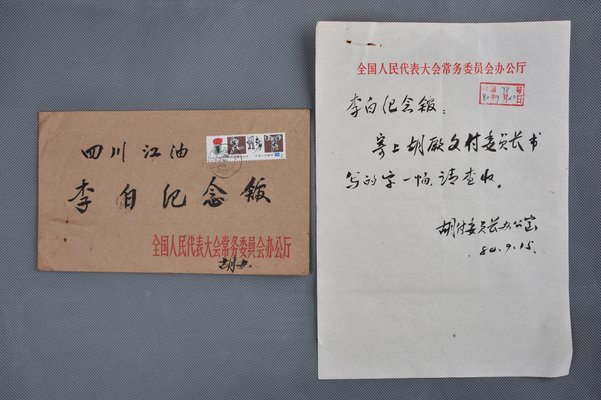 四川 江油
李白纪念馆
全国人民代表大会常务委員会办公厅
胡办
全国人民代表大会常务委员会办公厅
李白纪念馆:
寄上胡厥文付委员长书
写的字一幅,请查收。
胡付委员长办公室
80.9.15.